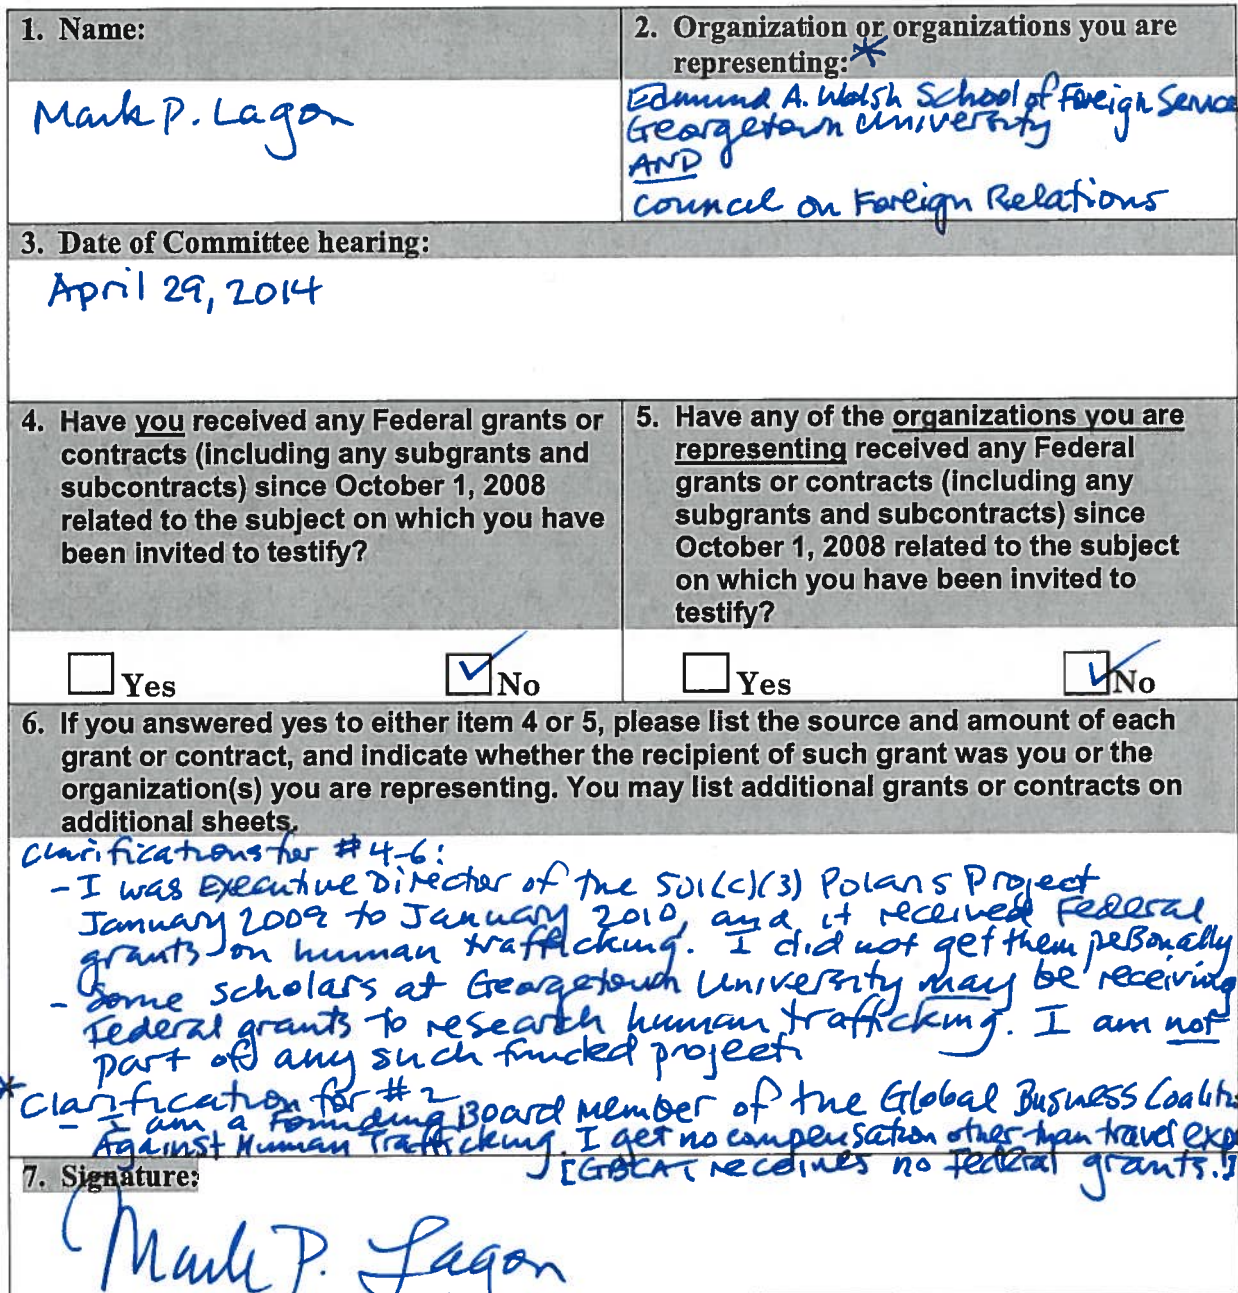 1. Name:
Mark P. Lagon
2. Organization or organizations you are
representing:*
Edmund A. Walsh School of Foreign Service
Georgetown University
AND
Council on Foreign Relations
3. Date of Committee hearing:
April 29, 2014
4. Have you received any Federal grants or
contracts (including any subgrants and
subcontracts) since October 1, 2008
related to the subject on which you have
been invited to testify?
Yes No
5. Have any of the organizations you are
representing received any Federal
grants or contracts (including any
subgrants and subcontracts) since
October 1, 2008 related to the subject
on which you have been invited to
testify?
Yes No
6. If you answered yes to either item 4 or 5, please list the source and amount of each
grant or contract, and indicate whether the recipient of such grant was you or the
organization(s) you are representing. You may list additional grants or contracts on
additional sheets.
Clarifications for #4-6:
- I was Executive Director of the 501(c)(3) Polaris Project
January 2009 to January 2010, and it received Federal
grants on human trafficking. I did not get them personally
- Some scholars at Georgetown University may be receiving
Federal grants to research human trafficking. I am not
part of any such funded project.
* Clarification for #2
- I am a Founding Board Member of the Global Business Coalit
Against Human Trafficking. I get no compensation other than travel exp
[GBCAT receives no Federal grants.]
7. Signature:
Mark P. Lagon